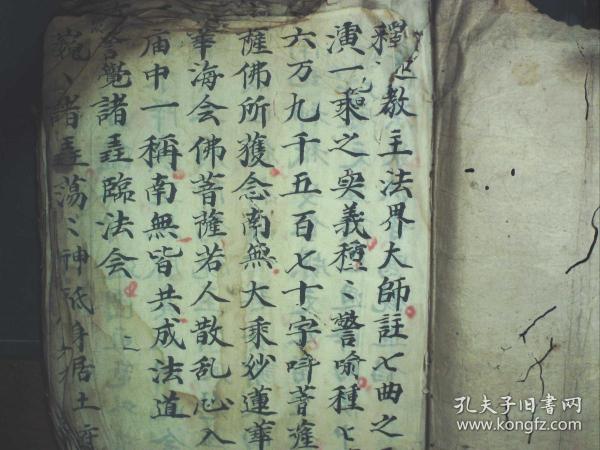 釋迦教主法界大師註七曲之
演一乘之奥義種〻譬喻種〻
六万九千五百七十字呌菩薩
薩佛所獲念南無大乘妙蓮華
華海会佛菩薩若人散乱心入
庙中一稱南無皆共成法道
會覺諸𠱾臨法会
巍〻諸 蕩〻神祗身居土
孔夫子旧书网
www.kongfz.com